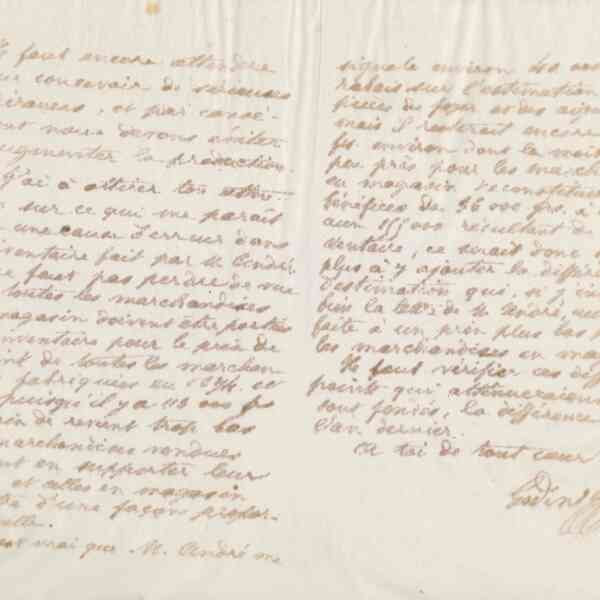 faut encore attendre
concevoir de sérieuses
et par consé-
nous devons éviter
augmenter la production.
J'ai à attirer ton atten-
sur ce qui me paraît
une cause d'erreur dans
inventaire fait par M. André.
ne faut pas perdre de vue
toutes les marchandises
magasin doivent être portées
inventaire pour le prix de
de toutes les marchan-
fabriquées en 1874, et
puisqu'il y a 113 000 fs
de revient trop bas
marchandises vendues
en supporter leur
et celles en magasin
d'une façon propor-
vrai que M. André me
signale environ 40 000
rabais sur l'estimation
pièces du foyer et des
mais il resterait encore
fs. environ dont la moitié
peu près pour les march
en magasin, reconstituer
bénéfices de 36 000 frs. à
aux 155 000 résultant de
ventaire, ce serait donc
plus à y ajouter la différe
d'estimation qui, si j'in
bien la de M. André
faite à un prix plus bas
les marchandises en mag
Il faut vérifier ces di
points qui atténueraient
sont fondés, la différence
l'an dernier.
à toi de tout cœur
Godin